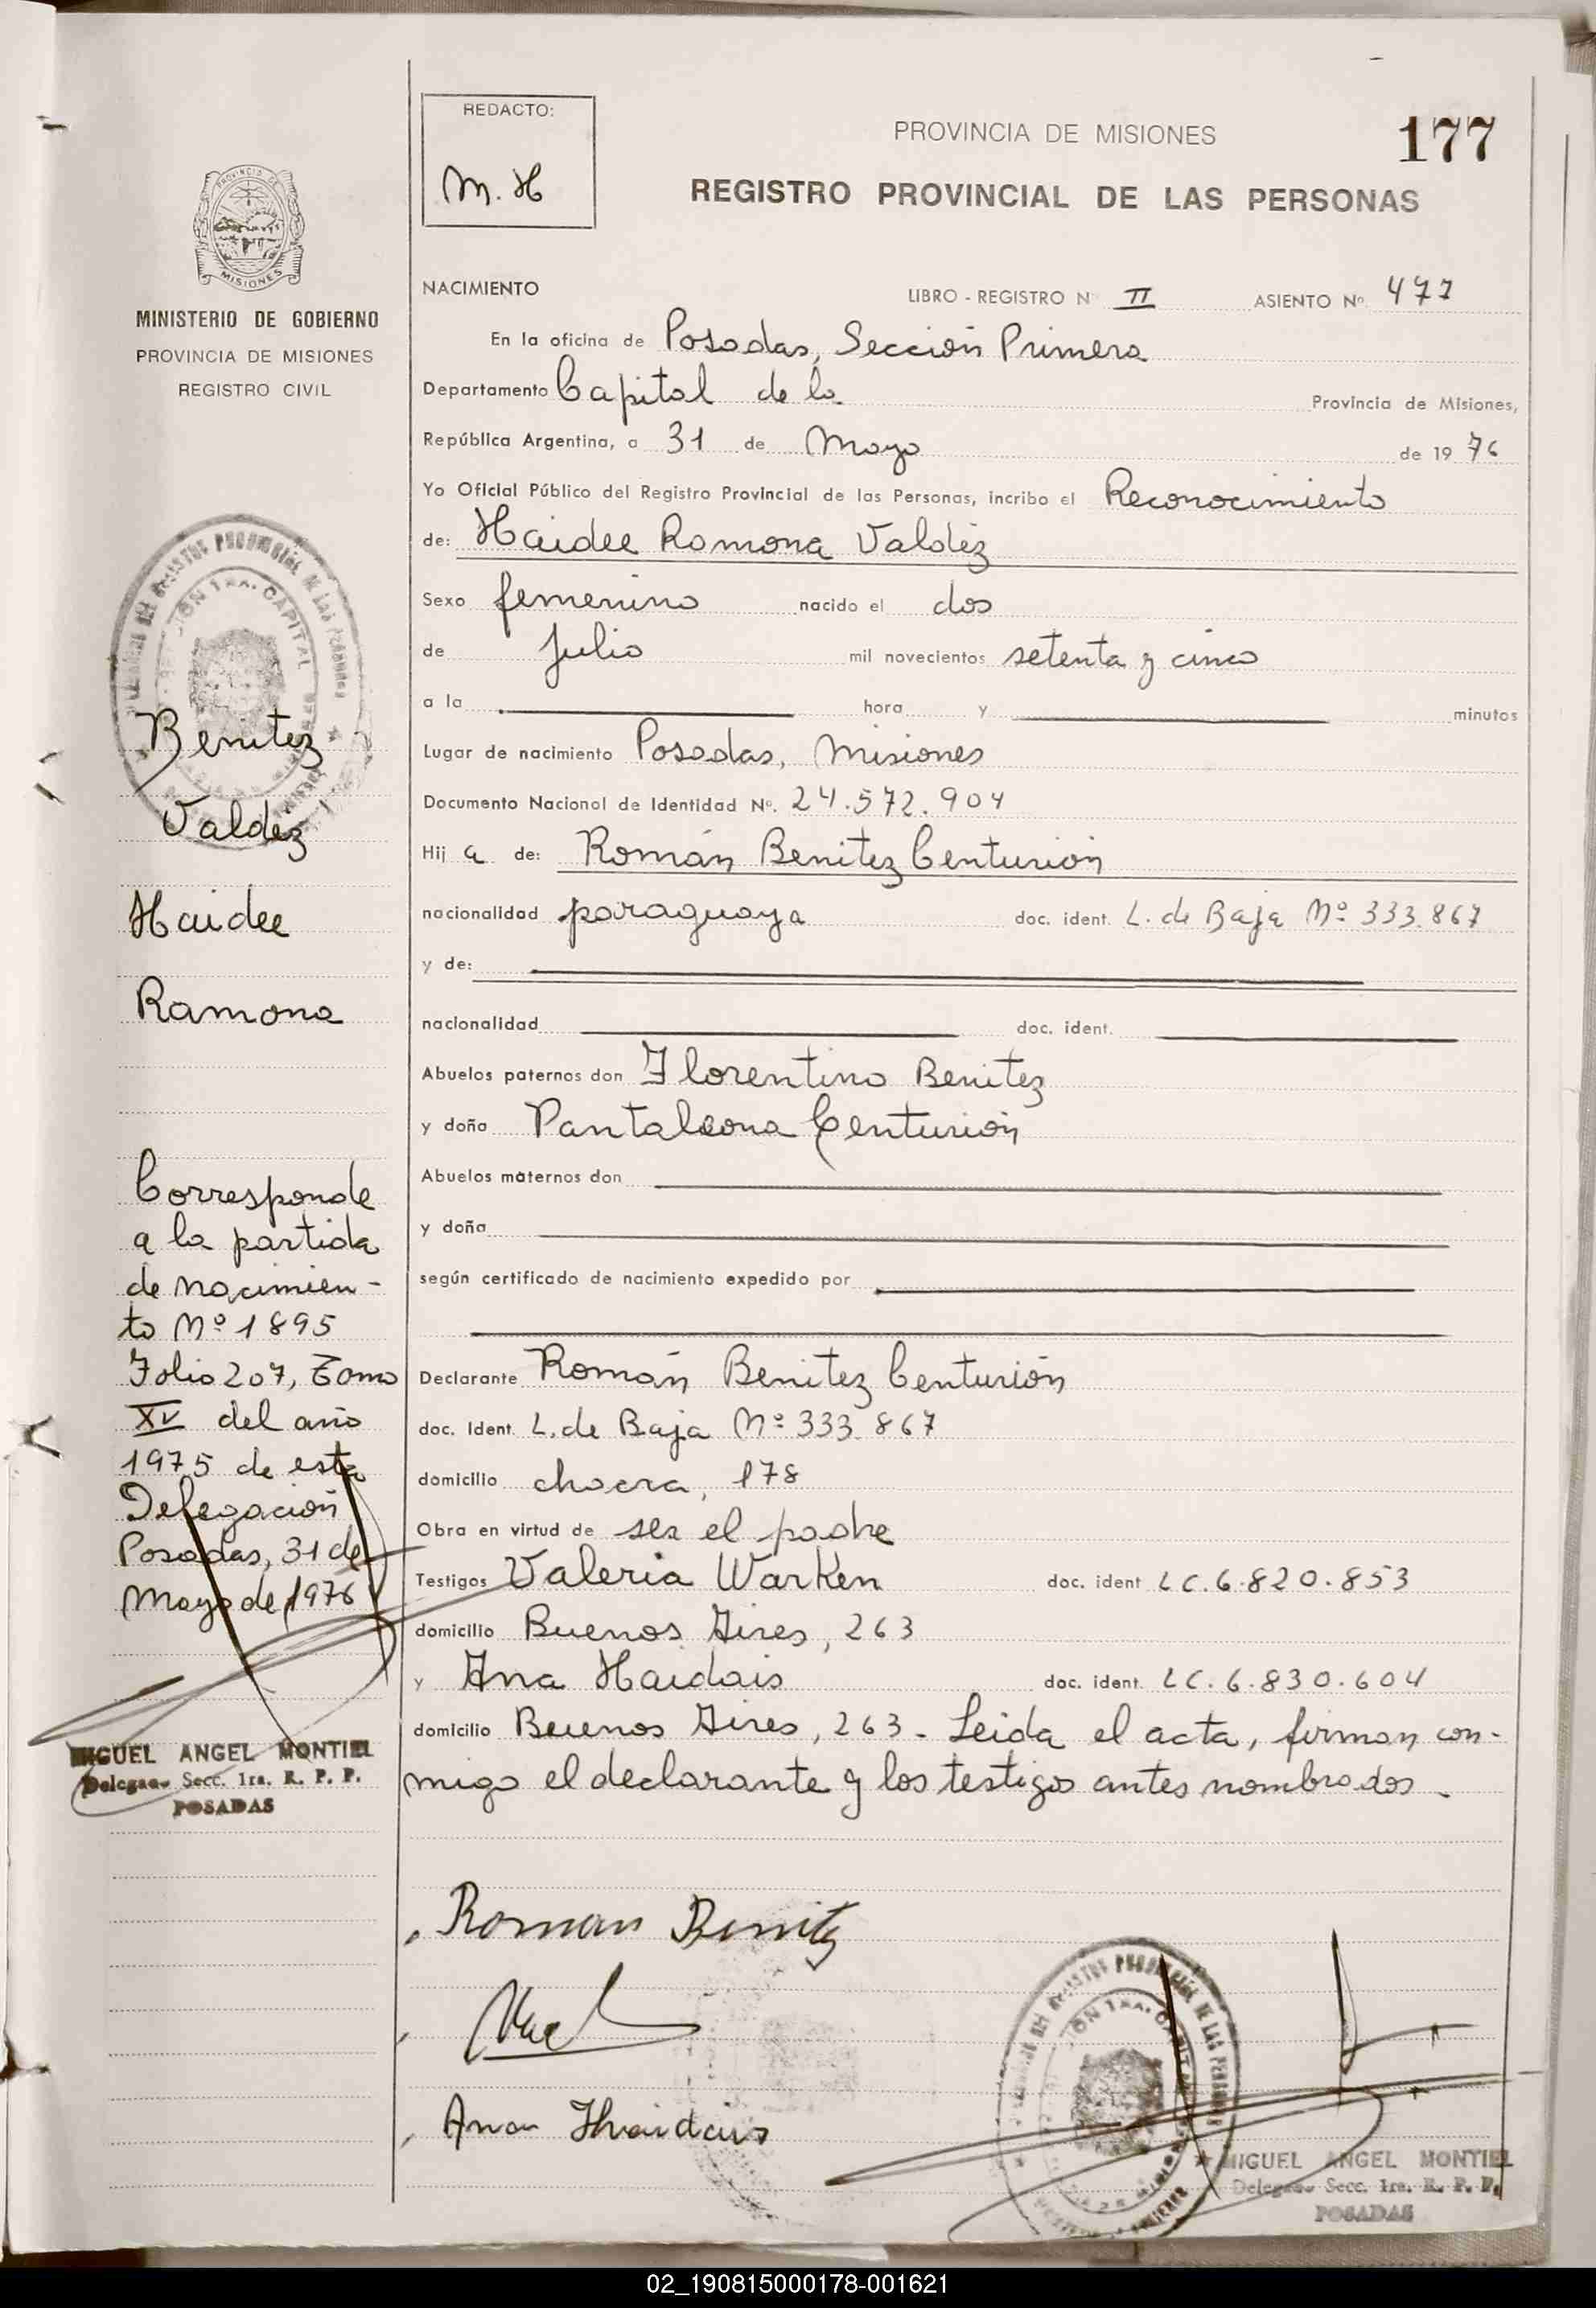 REDACTO:
M. H
PROVINCIA DE MISIONES
177
REGISTRO PROVINCIAL DE LAS PERSONAS
PROVINCIA DE
MISIONES
MINISTERIO DE GOBIERNO
PROVINCIA DE MISIONES
REGISTRO CIVIL
NACIMIENTO
LIBRO - REGISTRO Nº II ASIENTO Nº. 477
En la oficina de Posadas, Sección Primera
Departamento Capital de la Provincia de Misiones,
República Argentina, a 31 de Mayo de 19 76
Yo Oficial Público del Registro Provincial de las Personas, incribo el Reconocimiento
de: Haidee Ramona Valdéz
Sexo femenino nacido el dos
de Julio mil novecientos setenta y cinco
a la hora y minutos
Lugar de nacimiento Posadas, Misiones
Documento Nacional de Identidad Nº. 24.572.904
Hij a de: Román Benitez Centurión
nacionalidad paraguaya doc. ident. L. de Baja Nº 333.867
y de:
nacionalidad doc. ident.
Abuelos paternos don Florentino Benitez
y doña Pantaleona Centurión
Abuelos maternos don
y doña
según certificado de nacimiento expedido por
Declarante Román Benitez Centurión
doc. Ident. L. de Baja Nº 333.867
domicilio chacra, 178
Obra en virtud de ser el padre
Testigos Valeria Warken doc. ident L.C. 6.820.853
domicilio Buenos Aires, 263
y Ana Haidais doc. ident. L.C. 6.830.604
domicilio Buenos Aires, 263 - Leida el acta, firman con-
migo el declarante y los testigos antes nombrados.
Benitez
Valdéz
Haidee
Ramona
Corresponde
a la partida
de nacimien-
to Nº 1895
Folio 207, Tomo
XV del año
1975 de esta
Delegación
Posadas, 31 de
Mayo de 1976
MIGUEL ANGEL MONTIEL
Delegado Secc. 1ra. R. P. P.
POSADAS
Roman Benitez
Ana Haidais
MIGUEL ANGEL MONTIEL
Delegado Secc. 1ra. R. P. P.
POSADAS
02_190815000178-001621